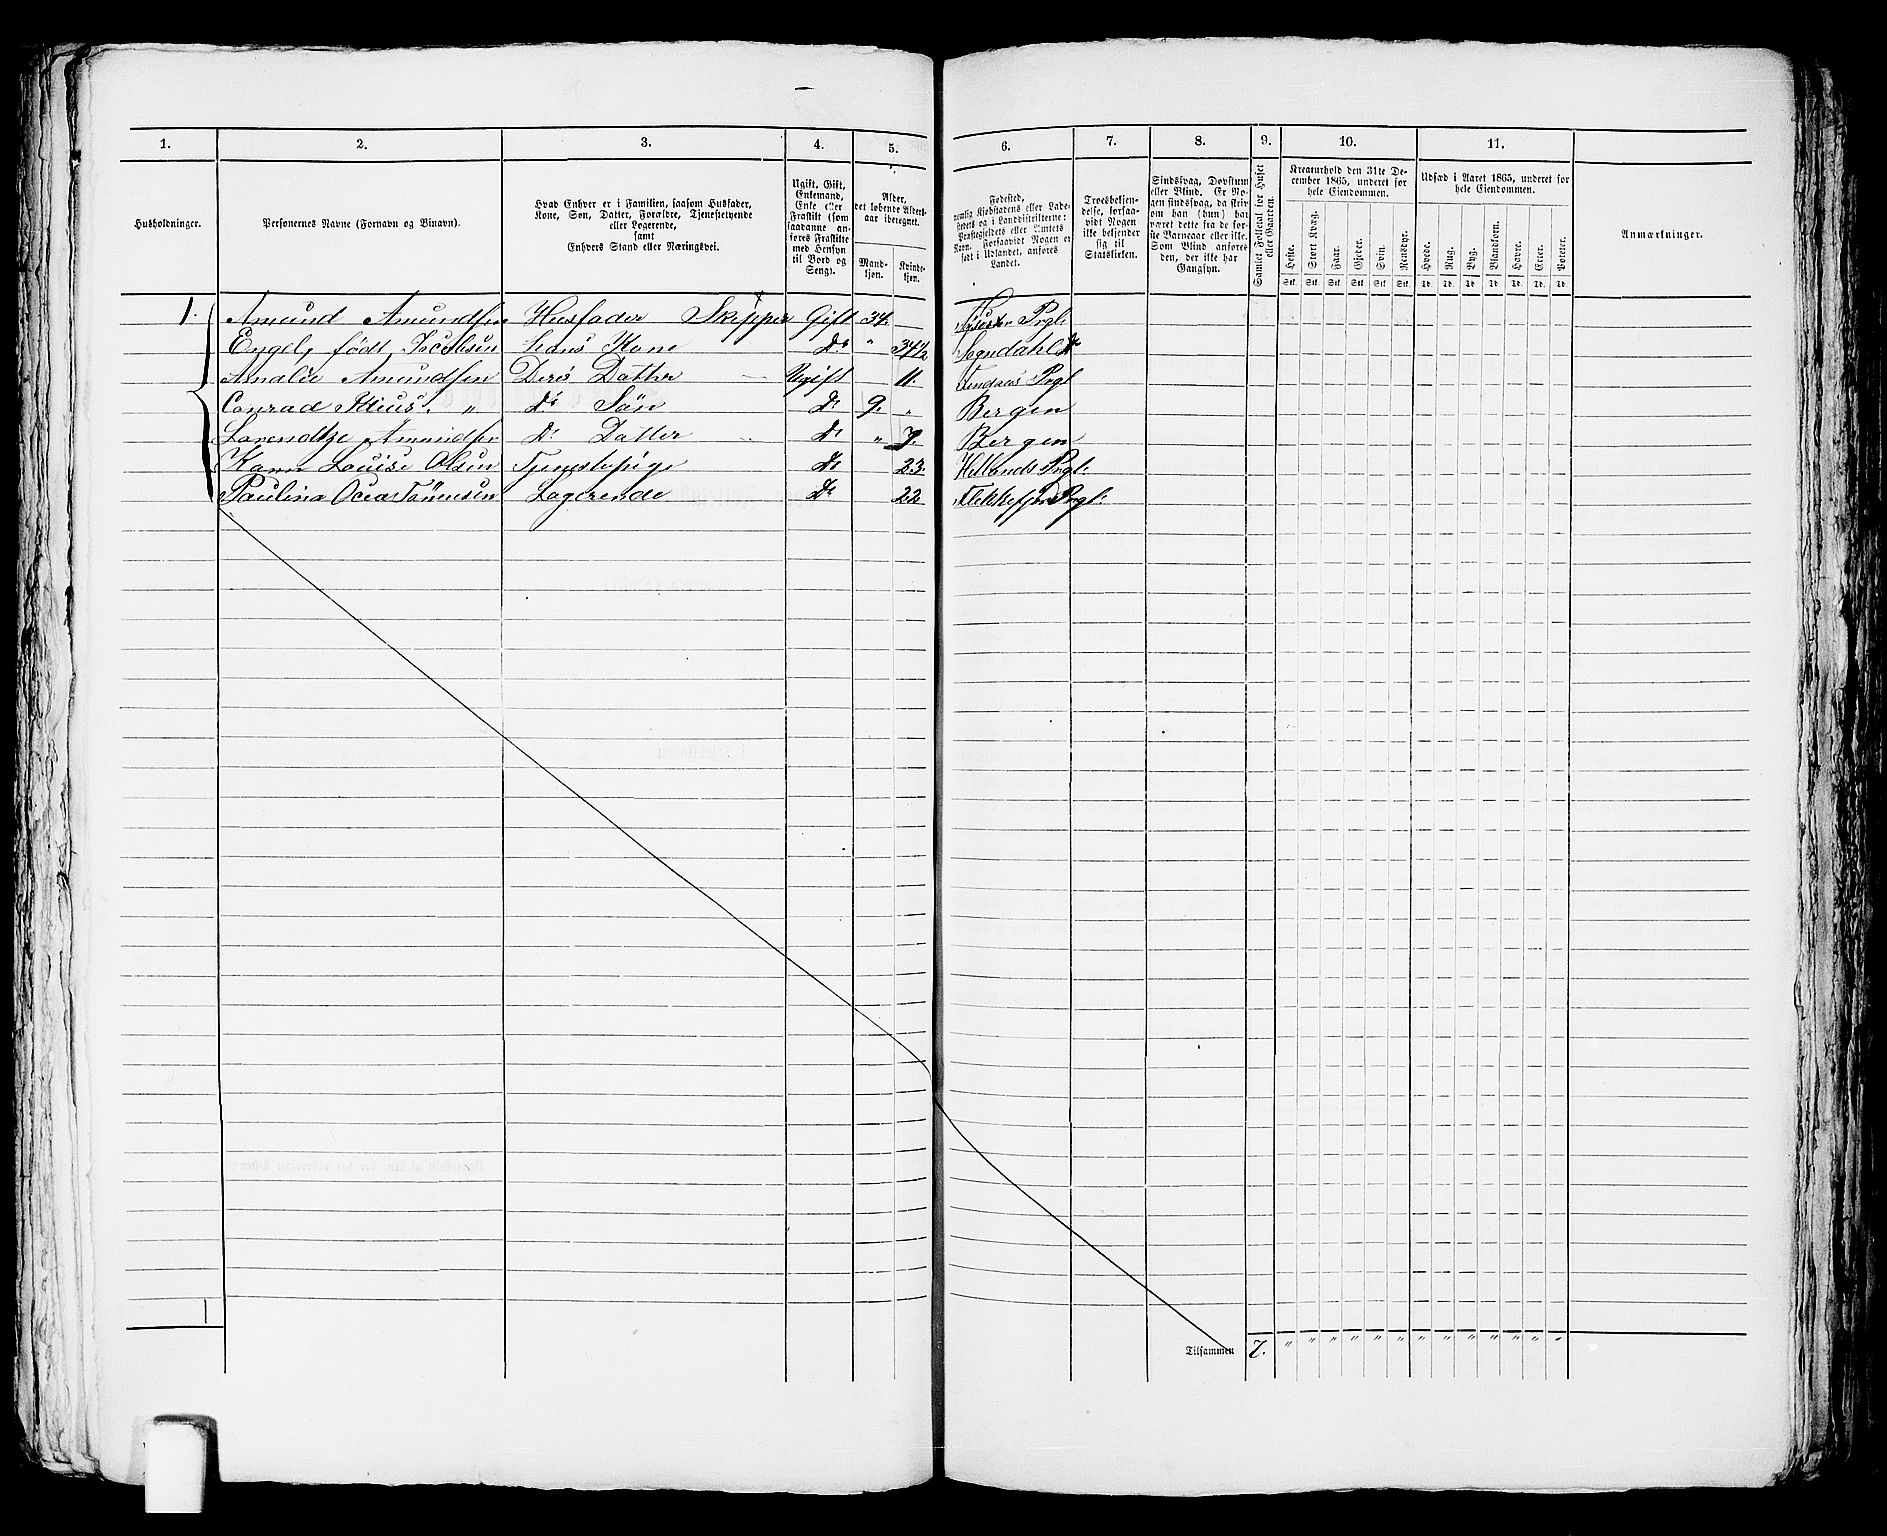 1. 2. 3. 4. 5. 6. 7. 8. 9. 10. 11.
Husholdninger.
Personernes Navne (Fornavn og Binavn).
Hvad Enhver er i Familien, saasom Husfader,
Kone, Søn, Datter, Forældre, Tjenestetyende
eller Logerende,
samt
Enhvers Stand eller Næringsvei.
Ugift, Gift,
Enkemand,
Enke eller
Fraskilt (som
saadanne an-
føres Fraskilte
med Hensyn
til Bord og
Seng).
Alder,
det løbende Alders-
aar iberegnet.
Mand-
kjøn.
Kvinde-
kjøn.
Fødested,
nemlig Kjøbstadens eller Lade-
stedets og i Landdistrikterne:
Præstegjeldets eller Amtets
Navn. Forsaavidt Nogen er
født i Udlandet, anføres
Landet.
Troesbekjen-
delse, forsaa-
vidt Nogen
ikke bekjender
sig til
Statskirken.
Sindssvag, Døvstum
eller Blind. Er No-
gen sindssvag, da skriv
om han (hun) har
været dette fra de før-
ste Barneaar eller ikke.
Som Blind anføres
den, der ikke har
Gangsyn.
Samlet Folketal for Huset
eller Gaarden.
Kreaturhold den 31te De-
cember 1865, underet for
hele Eiendommen.
Heste. Stort Kvæg. Faar. Gjeder. Svin. Rensdyr.
Stk. Stk. Stk. Stk. Stk. Stk.
Udsæd i Aaret 1865, underet for
hele Eiendommen.
Hvede. Rug. Byg. Blandkorn. Havre. Erter. Poteter.
Td. Td. Td. Td. Td. Td. Td.
Anmærkninger.
1. Amund Amundsen Huusfader Skipper Gift 34. Prgl.
Engel, født Jacobsen hans Kone Do " 34½ Sogndahl Do
Amalie Amundsen Deres Datter Ugift 11. Prgl
Conrad " Do Søn Do 9. " Bergen
Amundsen Do Datter Do " 7. Bergen
Karen Louise Olsen Tjenestepige Do 23. Hetlands Prgl.
Paulina Logerende Do 22 Flekkefjord Prgl.
1
Tilsammen 7. " " " " " " " " " " " " "